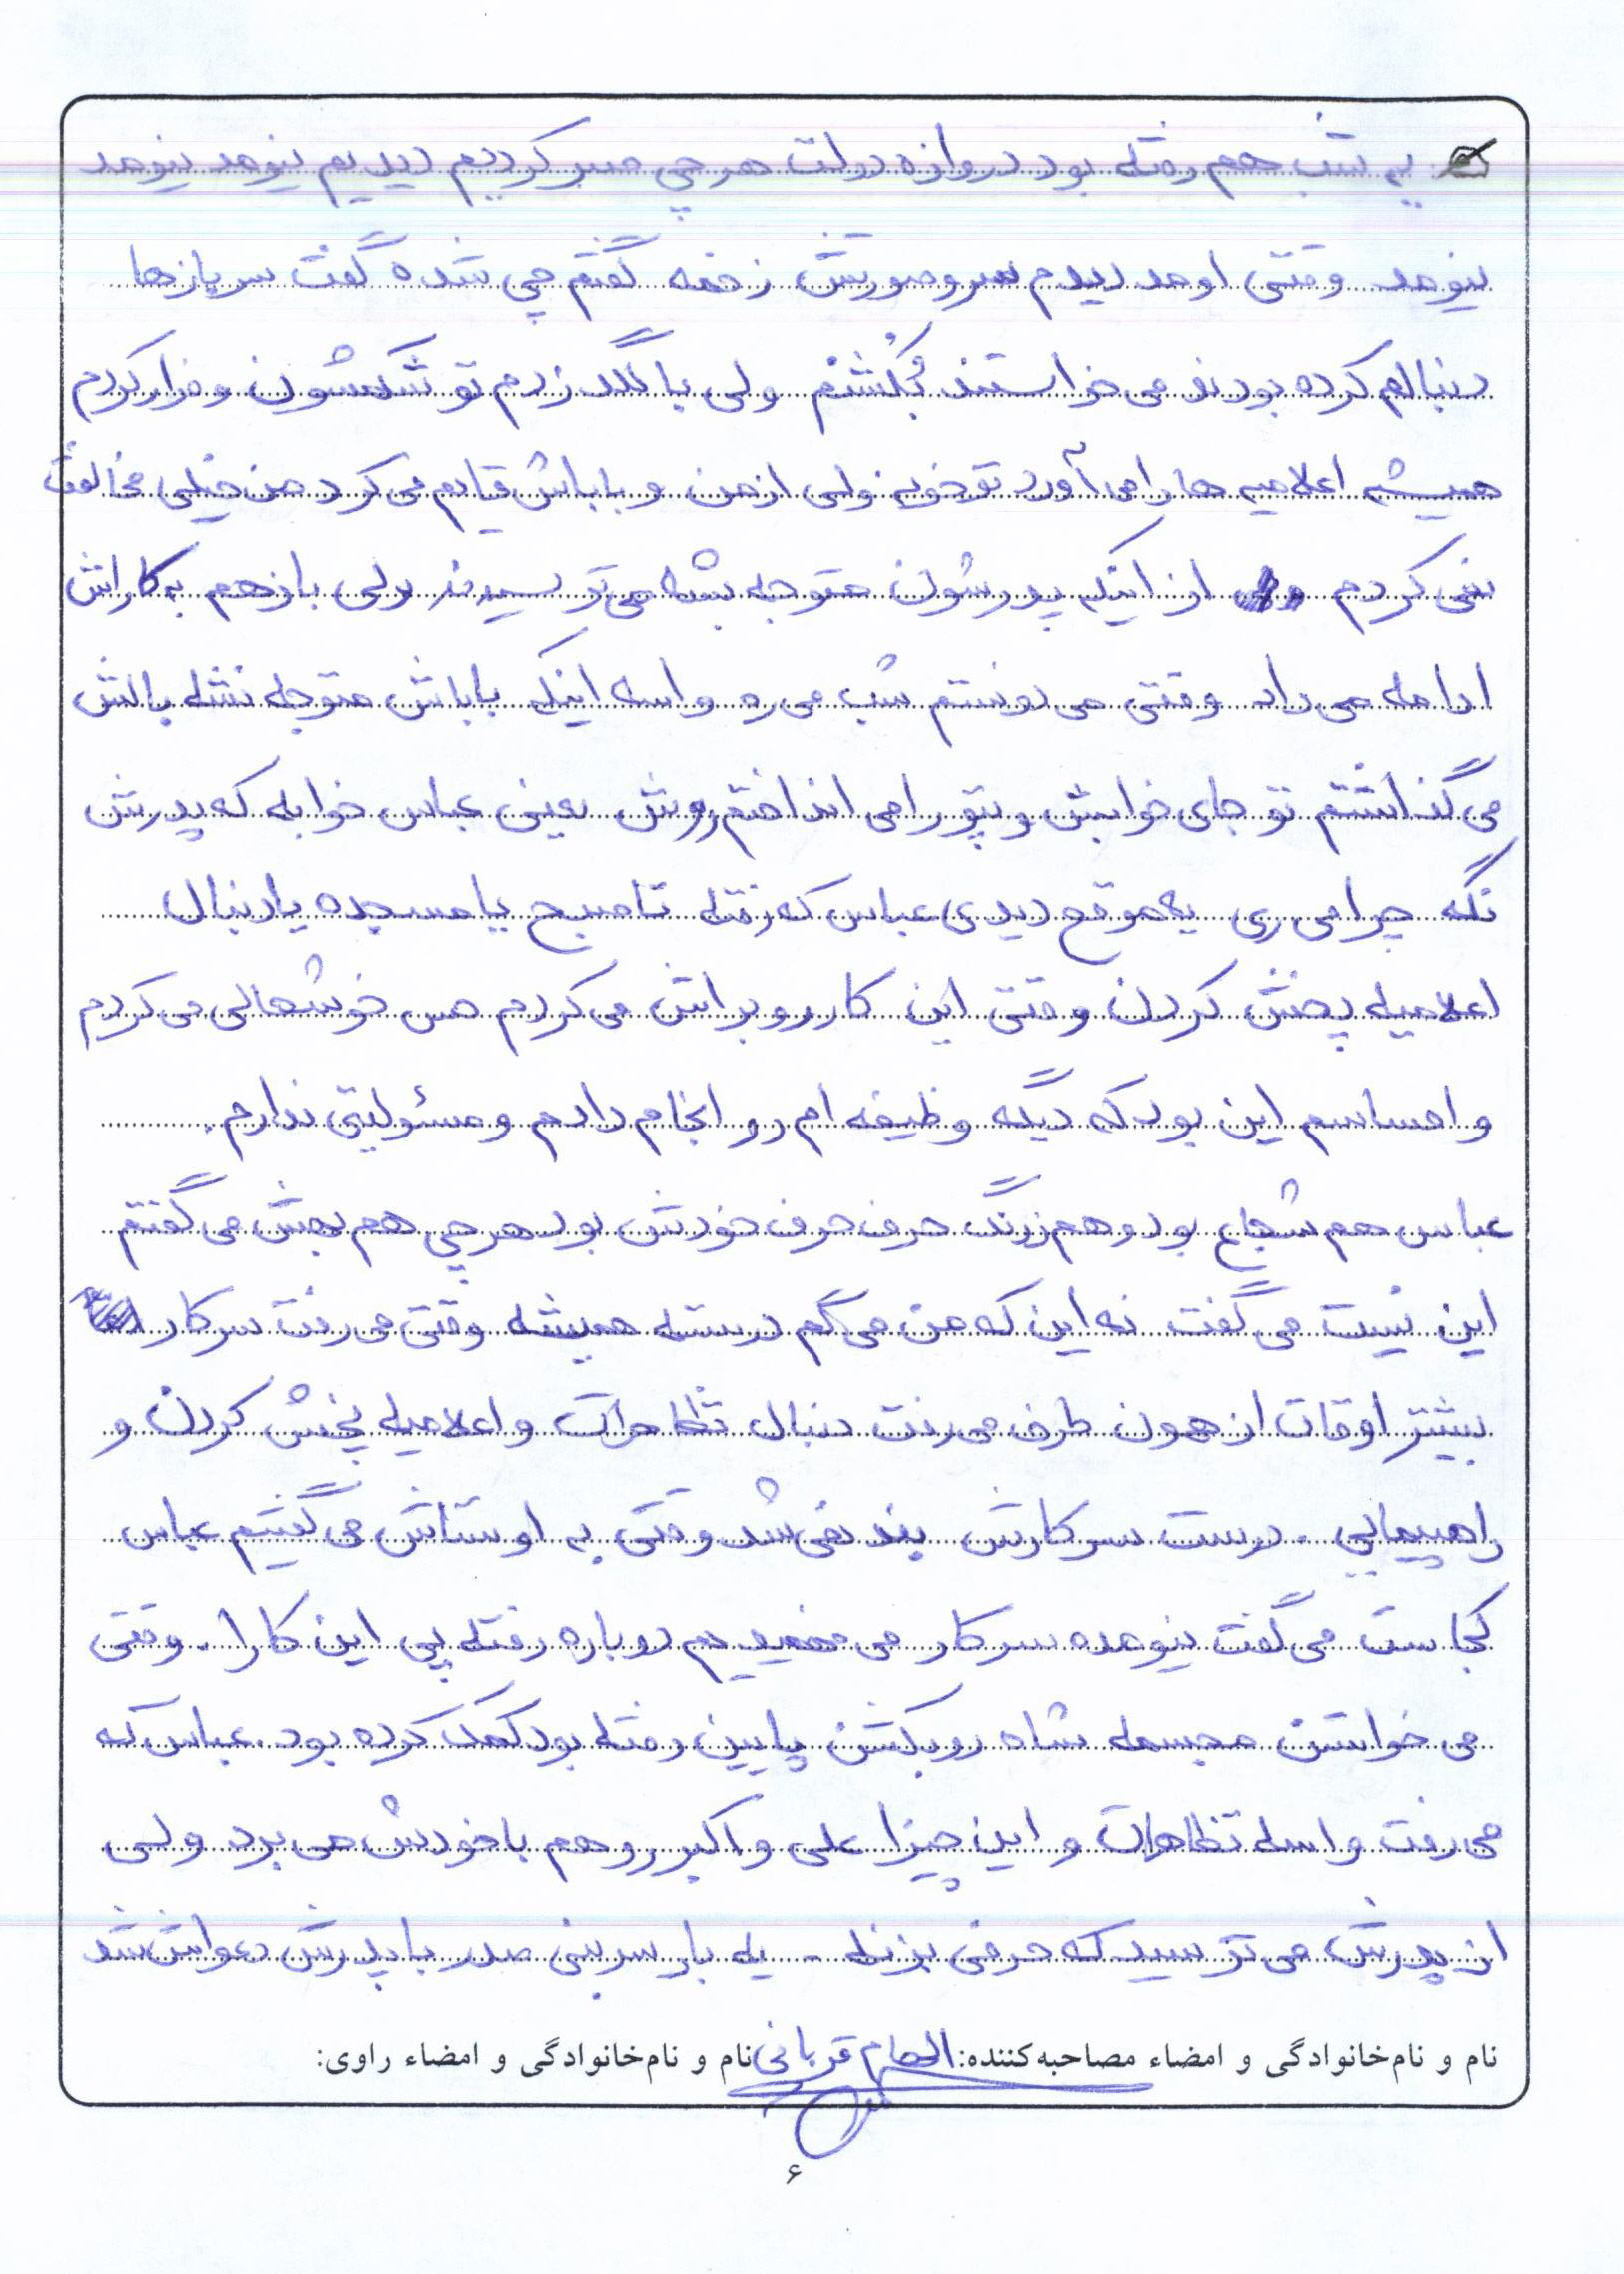 یه شب هم رفته بود دروازه دولت هر چی صبر کردیم دیدیم نیومد نیومد
نیومد وقتی اومد دیدم سر و صورتش زخمه گفتم چی شده گفت سربازها
دنبالم کرده بودند می خواستند بُکُشنم ولی با لگد زدم تو شکمشون و فرار کردم
همیشه اعلامیه ها را می آورد تو خونه ولی از من و باباش قایم می کرد من خیلی مخالفت
نمی کردم از اینکه پدرشون متوجه بشه می ترسیدند ولی باز هم به کاراش
ادامه می داد وقتی می دونستم شب می ره واسه اینکه باباش متوجه نشه بالش
می گذاشتم تو جای خوابش و پتو را می انداختم روش یعنی عباس خوابه که پدرش
نگه چرا می ری یه موقع دیدی عباس که رفته تا صبح یا مسجده یا دنبال
اعلامیه پخش کردن وقتی این کار رو براش می کردم حس خوشحالی می کردم
و احساسم این بود که دیگه وظیفه ام رو انجام دادم و مسئولیتی ندارم.
عباس هم شجاع بود و هم زرنگ حرف حرف خودش بود هر چی هم بهش می گفتم
این نیست می گفت نه این که من می گم درسته همیشه وقتی می رفت سر کار
بیشتر اوقات از همون طرف می رفت دنبال تظاهرات و اعلامیه پخش کردن و
راهپیمایی. درست سر کارش بند نمی شد وقتی به اوستاش می گفتیم عباس
کجاست می گفت نیومده سر کار می فهمیدیم دوباره رفته پی این کارا. وقتی
می خواستن مجسمه شاه رو بکشن پایین رفته بود کمک کرده بود. عباس که
می رفت واسه تظاهرات و این چیزا علی و اکبر رو هم با خودش می برد ولی
از پدرش می ترسید که حرفی بزنه - یه بار سر بنی صدر با پدرش دعواش شد
نام و نام‌خانوادگی و امضاء مصاحبه‌کننده: الهام قربانی نام و نام‌خانوادگی و امضاء راوی:
۶